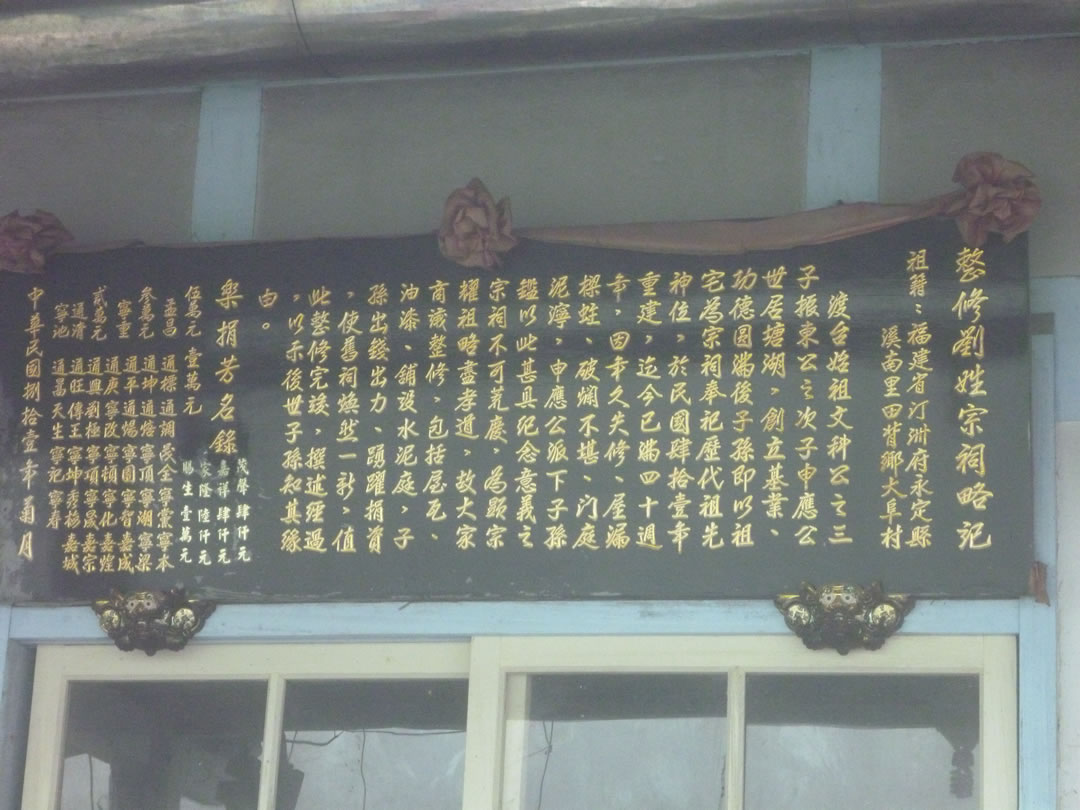 整修劉姓宗祠略記
祖籍：福建省汀洲府永定縣
溪南里田背鄉大阜村
渡台始祖文科公之三
子振東公之次子申應公
世居塘湖，創立基業、
功德圓滿後子孫即以祖
宅為宗祠奉祀歷代祖先
神位，於民國肆拾壹年
重建，迄今已滿四十週
年，因年久失修、屋漏
樑蛀、破爛不堪、门庭
泥濘，申應公派下子孫
鑑以此甚具紀念意義之
宗祠不可荒廢，為顯宗
耀祖略盡孝道，故大家
商議整修，包括屋瓦、
油漆、舖設水泥庭，子
孫出錢出力、踴躍捐資
，使舊祠煥然一新，值
此整修完竣，撰述經過
，以示後世子孫知其緣
由。
樂捐芳名錄
茂聲肆仟元
嘉祥肆仟元
家陸陸仟元
賜生壹萬元
伍萬元 壹萬元
孟昌 通樑 通調 茂全 寧黨 寧本
參萬元 通坤 通熔 寧頂 寧湖 寧梁
寧重 通平 通楊 寧圓 寧智 嘉成
貳萬元 通興 劉極 寧項 寧晟 嘉宗
通清 通旺 傳王
寧池 通昌 天生 寧記 寧春
中華民國捌拾壹年 月